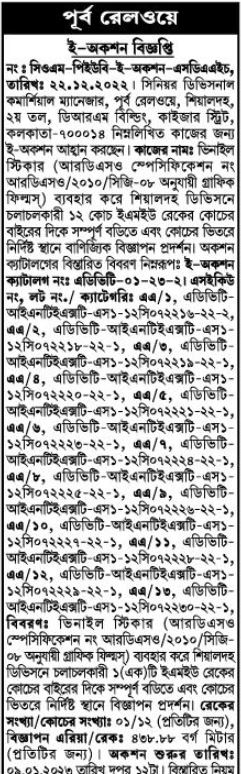 পূর্ব রেলওয়ে
ই-অকশন বিজ্ঞপ্তি
নং : সিওএম-পিইউবি-ই-অকশন-এসডিএএইচ,
তারিখ: ২২.১২.২০২২। সিনিয়র ডিভিসনাল
কমার্শিয়াল ম্যানেজার, পূর্ব রেলওয়ে, শিয়ালদহ,
২য় তল, ডিআরএম বিল্ডিং, কাইজার স্ট্রিট,
কলকাতা-৭০০০১৪ নিম্নলিখিত কাজের জন্য
ই-অকশন আহ্বান করছেন। কাজের নামঃ ভিনাইল
স্টিকার (আরডিএসও স্পেসিফিকেশন নং
আরডিএসও/২০১০/সিজি-০৮ অনুযায়ী গ্রাফিক
ফিল্মস্) ব্যবহার করে শিয়ালদহ ডিভিসনে
চলাচলকারী ১২ কোচ ইএমইউ রেকের কোচের
বাইরের দিকে সম্পূর্ণ বডিতে এবং কোচের ভিতরে
নির্দিষ্ট স্থানে বাণিজ্যিক বিজ্ঞাপন প্রদর্শন। অকশন
ক্যাটালগের বিস্তারিত বিবরণ নিম্নরূপঃ ই-অকশন
ক্যাটালগ নংঃ এডিভিটি-০১-২৩-২। এসইকিউ
নং, লট নং./ ক্যাটেগরিঃ এএ/১, এডিভিটি-
আইএনটিইএক্সটি-এস১-১২সি০৭২২১৬-২২-২,
এএ/২, এডিভিটি-আইএনটিইএক্সটি-এস১-
১২সি০৭২২১৮-২২-১, এএ/৩, এডিভিটি-
আইএনটিইএক্সটি-এস১-১২সি০৭২২১৯-২২-১,
এএ/৪, এডিভিটি-আইএনটিইএক্সটি-এস১-
১২সি০৭২২২০-২২-১, এএ/৫, এডিভিটি-
আইএনটিইএক্সটি-এস১-১২সি০৭২২২১-২২-১,
এএ/৬, এডিভিটি-আইএনটিইএক্সটি-এস১-
১২সি০৭২২২৩-২২-১, এএ/৭, এডিভিটি-
আইএনটিইএক্সটি-এস১-১২সি০৭২২২৪-২২-১,
এএ/৮, এডিভিটি-আইএনটিইএক্সটি-এস১-
১২সি০৭২২২৫-২২-১, এএ/৯, এডিভিটি-
আইএনটিইএক্সটি-এস১-১২সি০৭২২২৬-২২-১,
এএ/১০, এডিভিটি-আইএনটিইএক্সটি-এস১-
১২সি০৭২২২৭-২২-১, এএ/১১, এডিভিটি-
আইএনটিইএক্সটি-এস১-১২সি০৭২২২৮-২২-১,
এএ/১২, এডিভিটি-আইএনটিইএক্সটি-এস১-
১২সি০৭২২২৯-২২-১, এএ/১৩, এডিভিটি-
আইএনটিইএক্সটি-এস১-১২সি০৭২২৩০-২২-১,
বিবরণঃ ভিনাইল স্টিকার (আরডিএসও
স্পেসিফিকেশন নং আরডিএসও/২০১০/সিজি-
০৮ অনুযায়ী গ্রাফিক ফিল্মস্) ব্যবহার করে শিয়ালদহ
ডিভিসনে চলাচলকারী ১(এক)টি ইএমইউ রেকের
কোচের বাইরের দিকে সম্পূর্ণ বডিতে এবং কোচের
ভিতরে নির্দিষ্ট স্থানে বিজ্ঞাপন প্রদর্শন। রেকের
সংখ্যা/কোচের সংখ্যাঃ ০১/১২ (প্রতিটির জন্য),
বিজ্ঞাপন এরিয়া/রেকঃ ৪৩৮.৮৮ বর্গ মিটার
(প্রতিটির জন্য)। অকশন শুরুর তারিখঃ
০৯.০১.২০২৩ তারিখ দুপুর ১২টা। বিস্তারিত নিয়ম